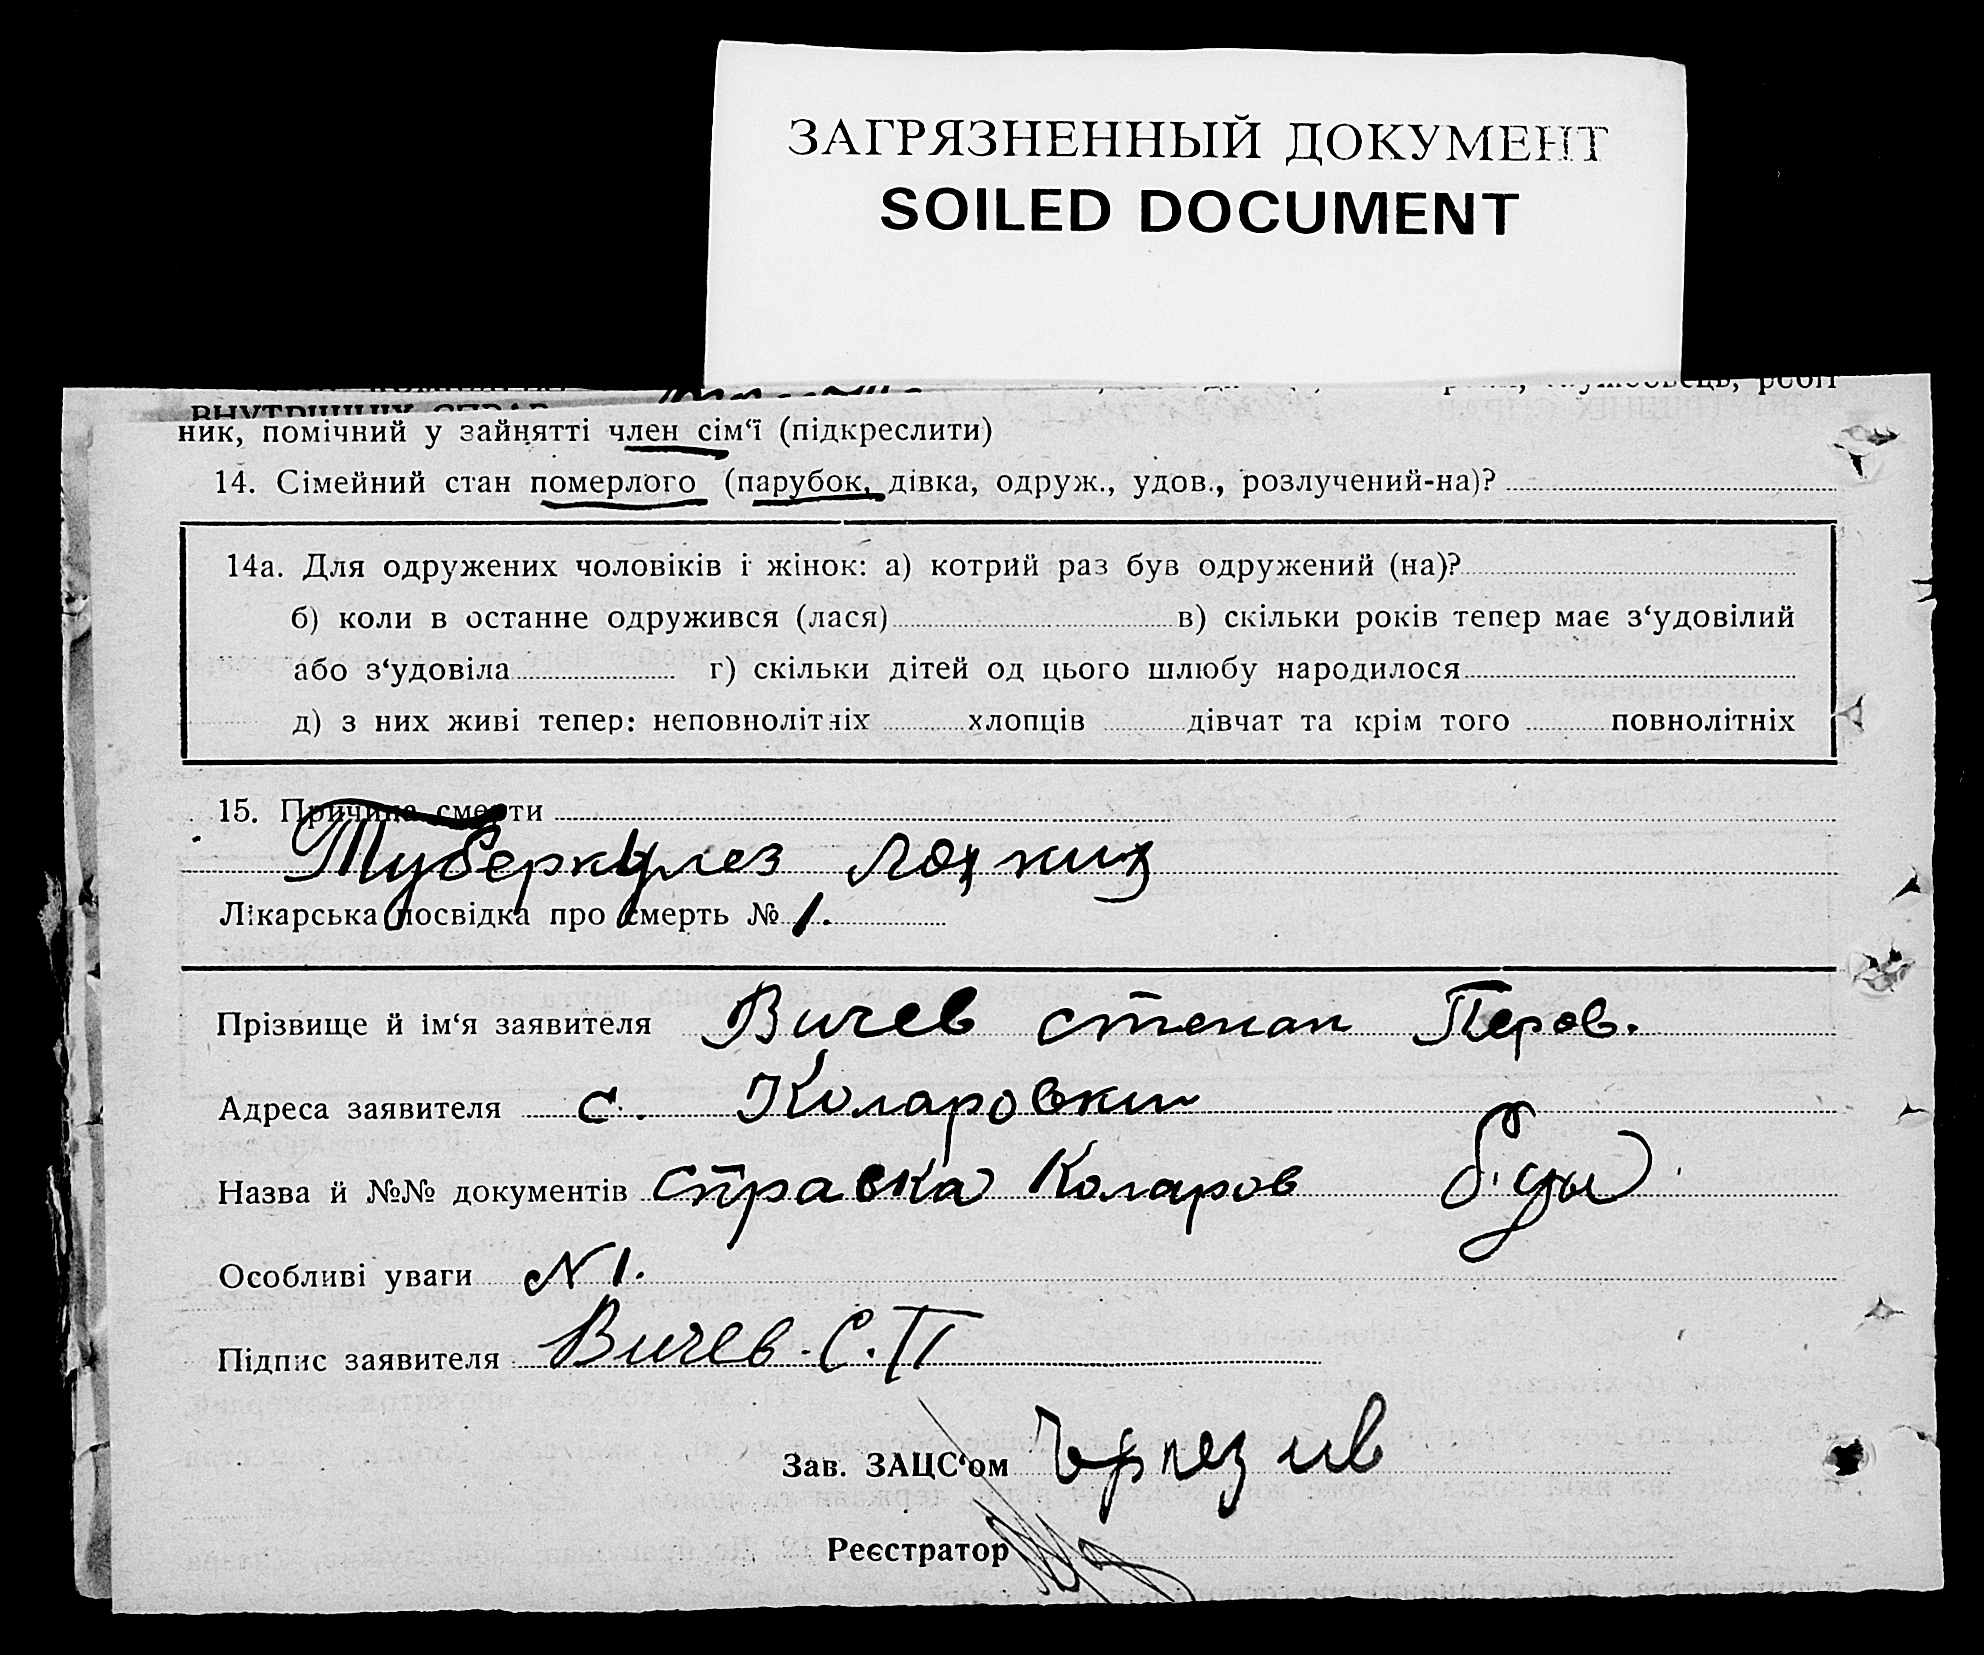 ЗАГРЯЗНЕННЫЙ ДОКУМЕНТ
SOILED DOCUMENT
ник, помічний у зайнятті член сім‘ї (підкреслити)
14. Сімейний стан померлого (парубок, дівка, одруж., удов., розлучений-на)?
14а. Для одружених чоловіків і жінок: а) котрий раз був одружений (на)?
б) коли в останне одружився (лася) в) скільки років тепер має з‘удовілий
або з‘удовіла г) скільки дітей од цього шлюбу народилося
д) з них живі тепер: неповнолітніх хлопців дівчат та крім того повнолітніх
15. Причина смерти
Туберкулез
Лікарська посвідка про смерть № 1.
Прізвище й ім‘я заявителя Вичев Степан Перов.
Адреса заявителя с. Коларовки
Назва й №№ документів справка Коларов
Особливі уваги N 1.
Підпис заявителя Вичев. С. П
Зав. ЗАЦС‘ом
Реєстратор